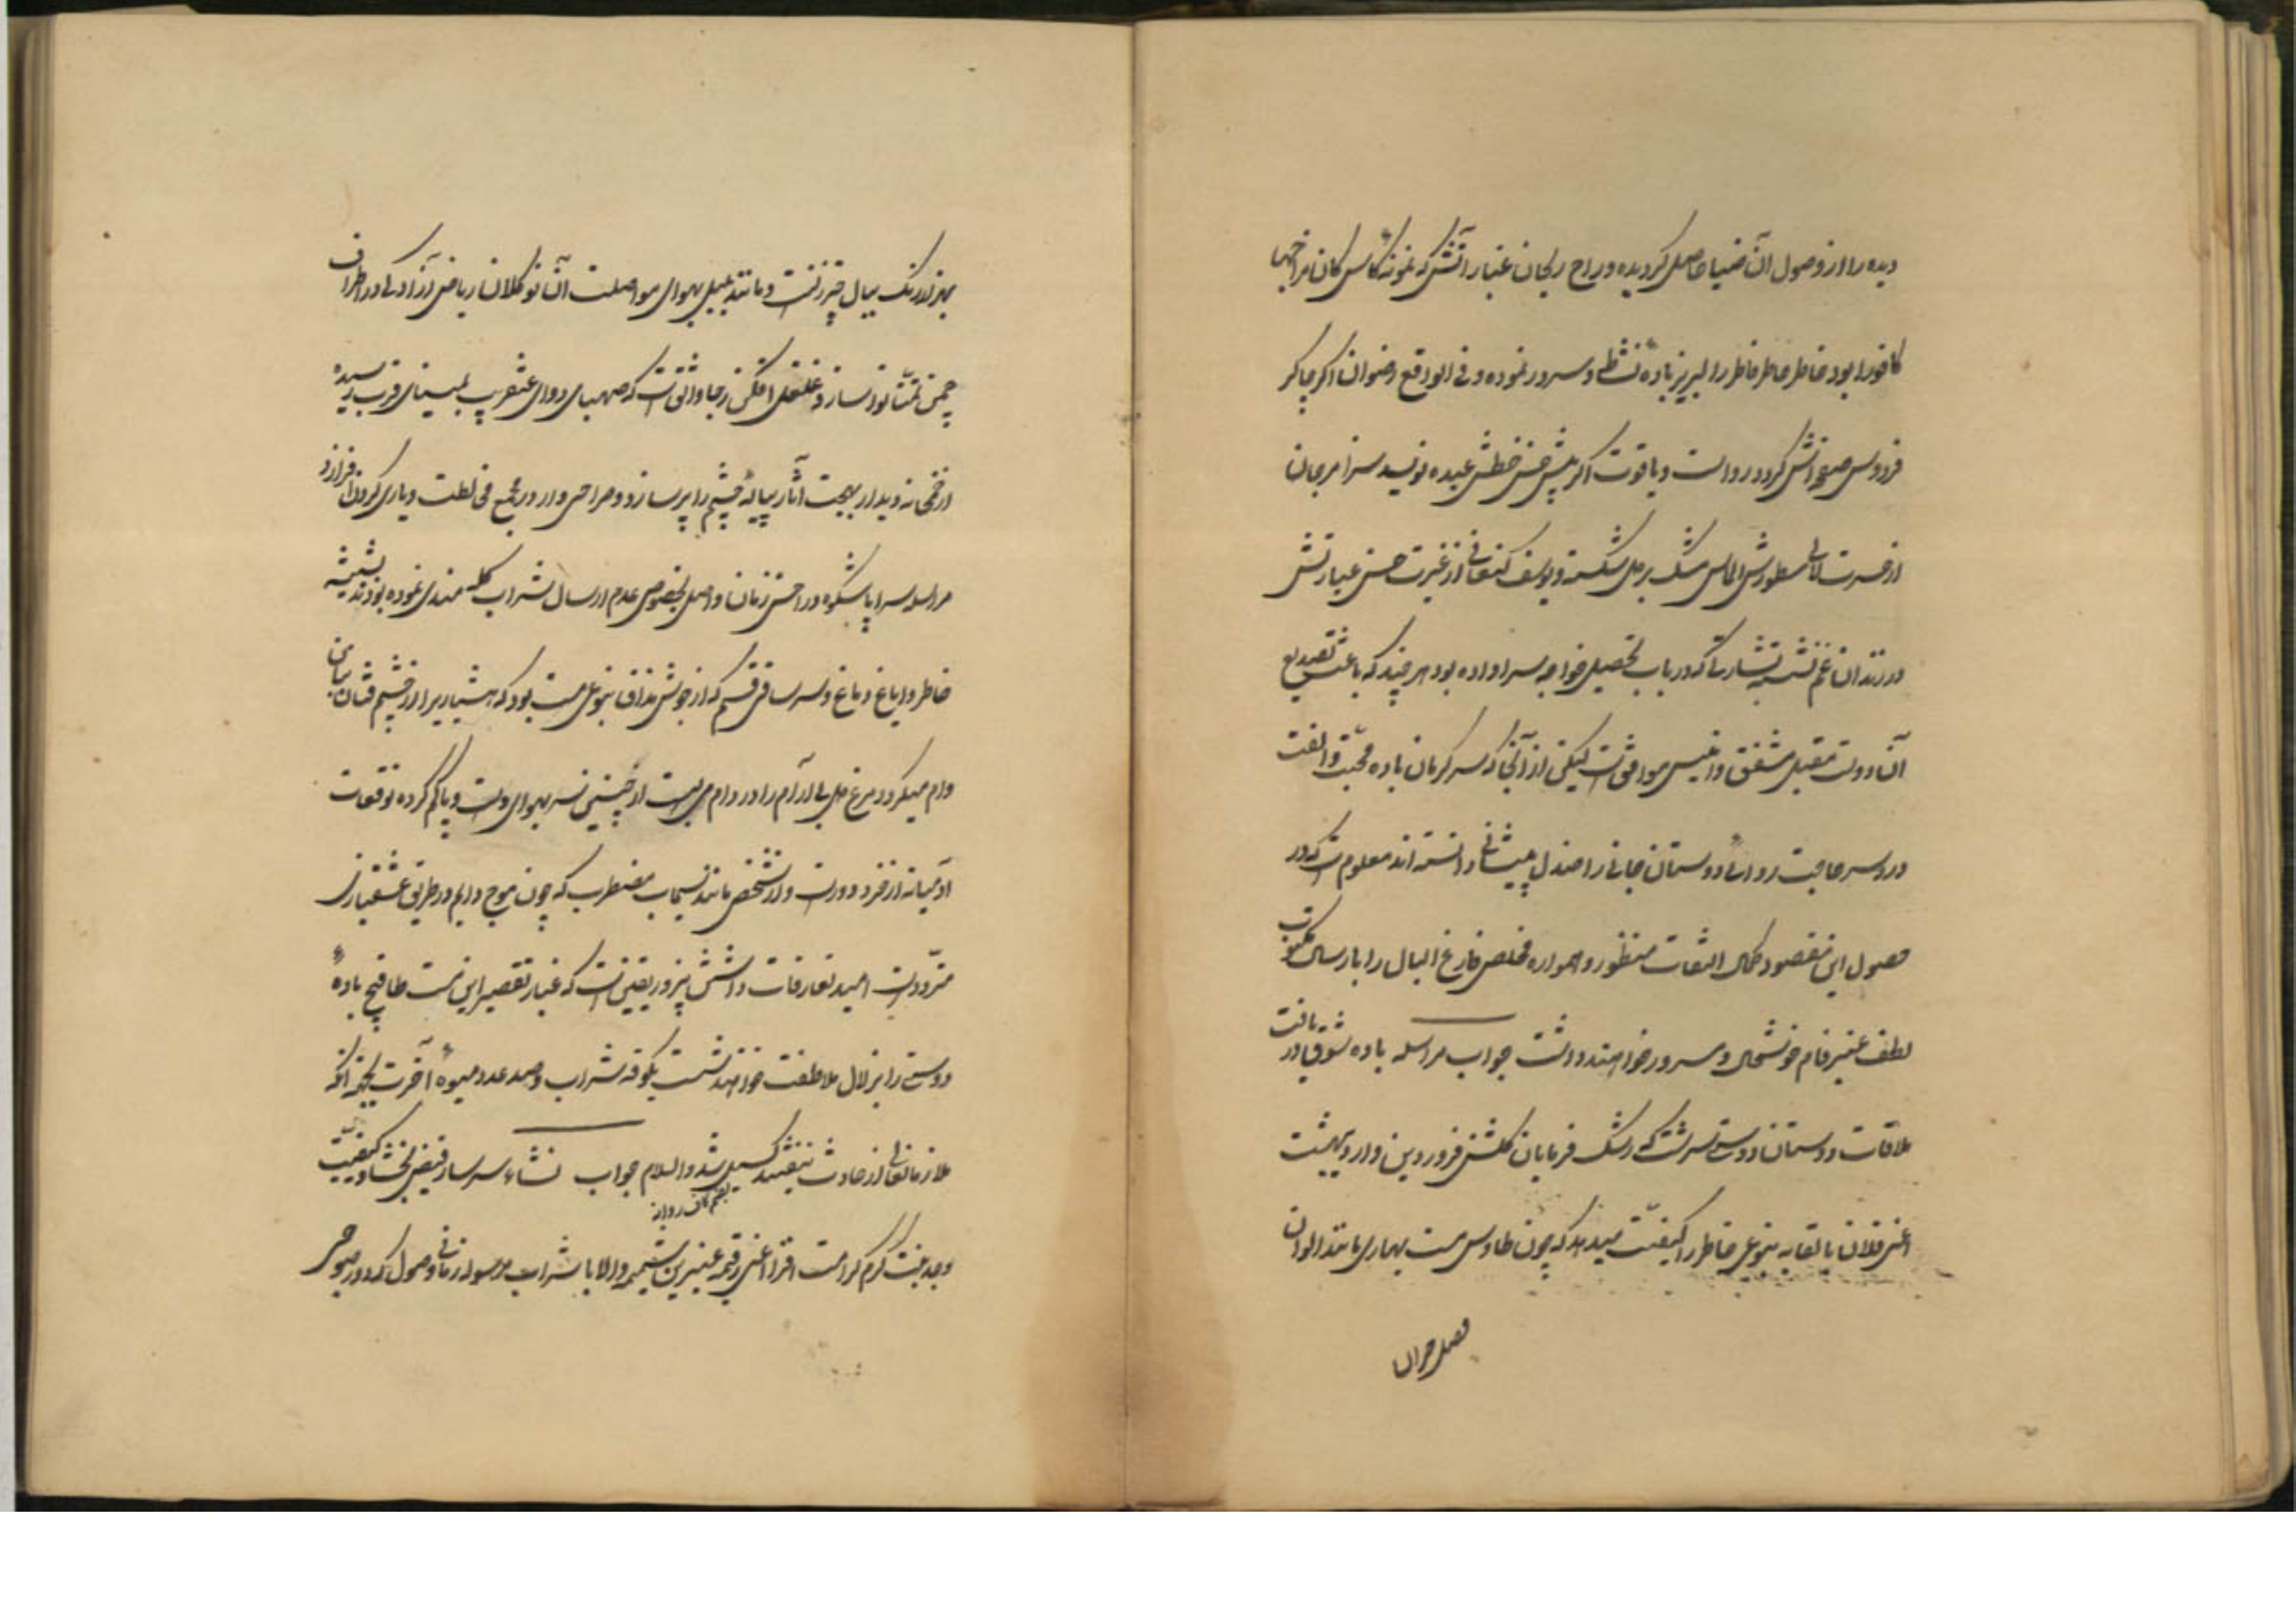 دیده را از وصول آن ضیا حاصل گردیده و راح ریحان غبار آتش که نمونه کأس کان مزاجها
کافورا بود خاطر خاطر را لبریز باده نشاط و سرور نموده و فی الواقع رضوان اگر چاکر
فردوس صفحه اش گردد رواست و یاقوت اگر پیش حسن خطش عبده نویسد سزا مرجان
از حسرت لآلی سطورش الماس شک بر دل شکسته و یوسف کنعانی از غیرت حسن عبارتش
در زندان غم نشسته بشارتی که در باب تحصیل خواجه سرا داده بود هر چند که باعث تصدیع
آن دوست مقبل مشفق و انیس موافق است لیکن از آنجا که سر گرمان باده محبت و الفت
درد سر حاجت روائی دوستان جانی را صندل پیشانی دانسته اند معلوم است که در
حصول این مقصود کمال التفات منظور و همواره مخلص فارغ البال را بارسال مکتوب
لطف عنبر فام خوشحال و مسرور خواهند داشت جواب مراسله باده شوق یافت
ملاقات دوستان دوستی سرشت که رشک فرمایان گلشن فروردین و اردیبهشت
اعنی فلان یا لقابه بنوعی خاطر را کیفیت میدهد که چون طاوس مست بهاری مانند الوان
فصل خزان
بهزار رنگ ببال خیز زنست و مانند بلبل بهوای مواصلت آن نوگلان ریاض آزادگی در اطراف
چمن تمنا نوا ساز و غلغل افکن رجا واثق است که صهبای دوای عنقریب بمینای قرب رسیده
از خمخانه دیدار بهجت آثار پیاله چشم را پر سازد و صراحی وار در مجمع مخالطت و یاری گردن افرازد
مراسله سراپا شکوه در احسن زمان واصل بخصوص عدم ارسال شراب گله مندی نموده بودند بشیشه
خاطر و ایاغ دماغ و سر ساقی قسم که از خویش مذاق بنوعی مست بود که هشیار را از چشم فتان بتان
وام میکرد و مرغ دل بی آرام را در دام می بست از چنین سر بهوای دست و پا گم کرده توقعات
آدمیانه از خرد دورست و از شخص مانند سیماب مضطرب که چون موج دایم در طریق عشقبازی
متردد است امید تعارفات داشتن نیز و یقین است که غبار تقصیر این مست طافح باده
دوستی را بزلال ملاطفت خواهند شست یکوقه شراب و صد عدد میوه آخرت بجهة آنکه
ملازمان از حادث بیفتند گسیل شد والسلام جواب نشاء سرسار فیض بخشا و کیفیت
بضم کاف روانه
وجد بنت کرم کرامت افزا اعنی رقیمه عنبرین شمیم والا با شراب مرسوله زمانی وصول که در صبوحی